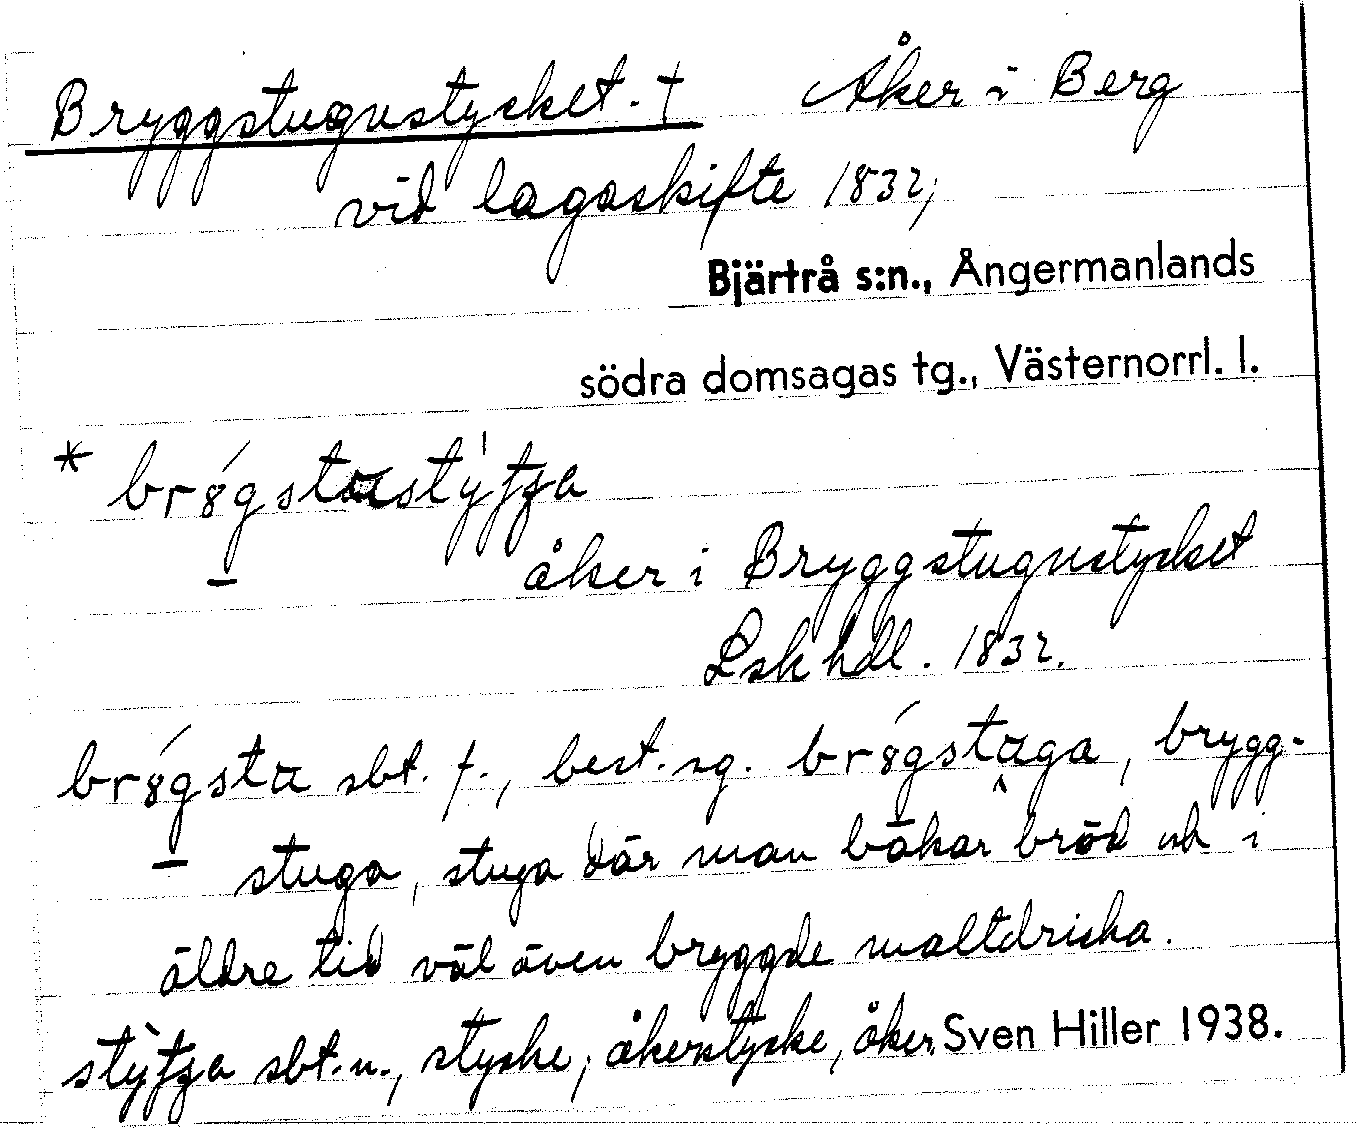 Bryggstugustycket. † Åker i Berg
vid lagaskifte 1832;
Bjärtrå s:n., Ångermanlands
södra domsagas tg., Västernorrl. l.
åker i Bryggstugustycket
Lskhdl. 1832.
sbt. f., best. sg. brygg-
stuga, stuga där man bakar bröd och i
äldre tid väl även bryggde maltdricka.
sbt. n., stycke, åkerstycke, åker. Sven Hiller 1938.